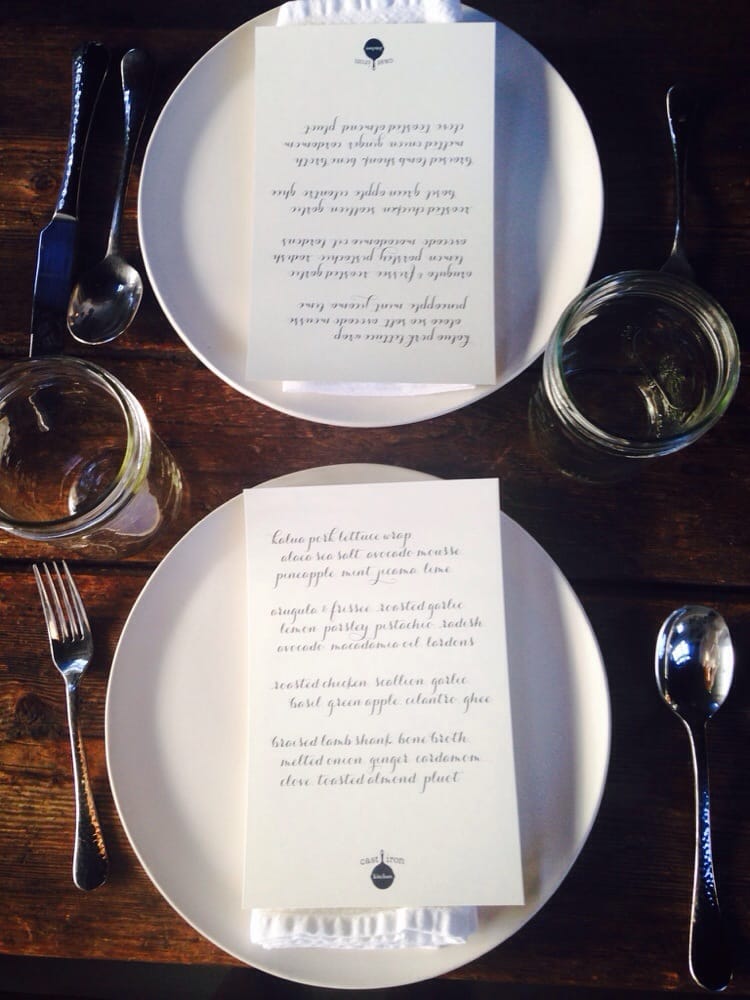 cast iron
kitchen
kalua pork lettuce wrap
alaea sea salt avocado mousse
pineapple mint jicama lime
arugula & frissee roasted garlic
lemon parsley pistachio radish
avocado macadamia oil lardons
roasted chicken scallion garlic
basil green apple cilantro ghee
braised lamb shank bone broth
melted onion ginger cardamom
clove toasted almond pluot
kalua pork lettuce wrap
alaea sea salt avocado mousse
pineapple mint jicama lime
arugula & frissee roasted garlic
lemon parsley pistachio radish
avocado macadamia oil lardons
roasted chicken scallion garlic
basil green apple cilantro ghee
braised lamb shank bone broth
melted onion ginger cardamom
clove toasted almond pluot
cast iron
kitchen